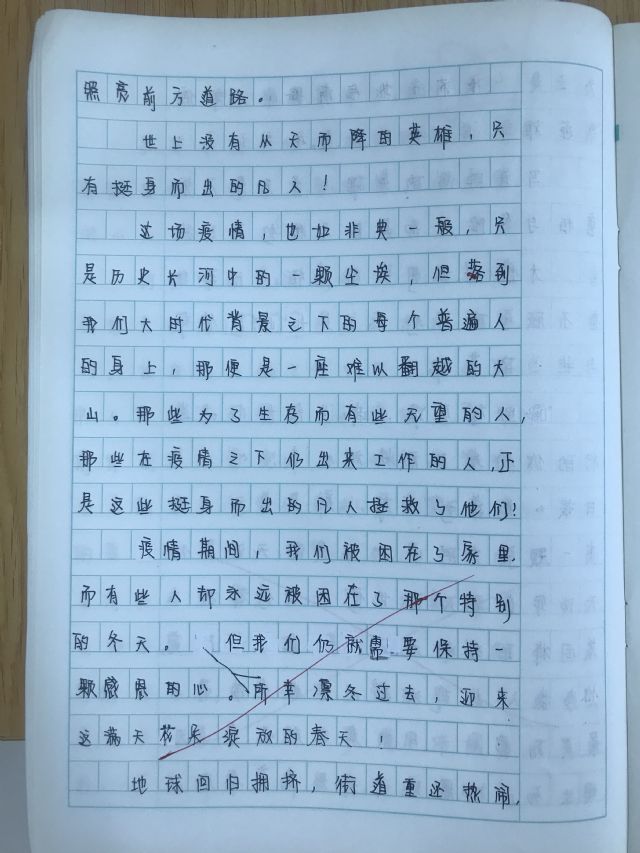 照亮前方道路。
世上没有从天而降的英雄，只
有挺身而出的凡人！
这场疫情，也如非典一般，只
是历史长河中的一颗尘埃，但落到
我们大时代背景之下的每个普遍人
的身上，那便是一座难以翻越的大
山。那些为了生存而有些无望的人，
那些在疫情之下仍出来工作的人，正
是这些挺身而出的凡人拯救了他们！
疫情期间，我们被困在了家里.
而有些人却永远被困在了那个特别
的冬天。但我们仍就需要保持一
颗感恩的心。所幸凛冬过去，迎来
这满天花朵浪放的春天！
地球回归拥挤，街道重还热闹，